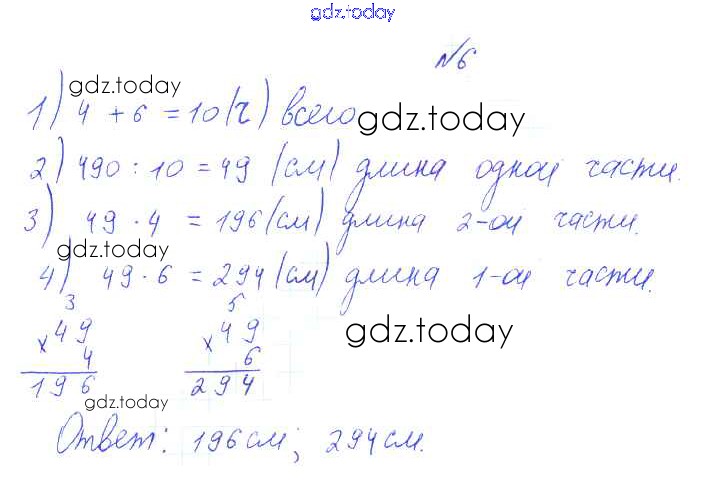 gdz.today
№6
gdz.today
1) 4 + 6 = 10 (ч) всего
gdz.today
2) 490 : 10 = 49 (см) длина одной части.
3) 49 · 4 = 196 (см) длина 2-ой части.
gdz.today
4) 49 · 6 = 294 (см) длина 1-ой части.
3 5
× 49 × 49
gdz.today
4 6
196 294
gdz.today
Ответ: 196 см; 294 см.